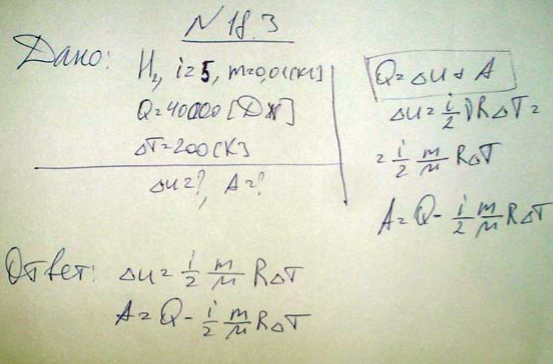 № 18.3
Дано:
H₂, i=5, m=0,01[кг]
Q=40000 [Дж]
ΔT=200[К]
Δu=?, A=?
Q=Δu+A
Δu=i/2 νRΔT=
=i/2 m/μ RΔT
A=Q-i/2 m/μ RΔT
Ответ: Δu=i/2 m/μ RΔT
A=Q-i/2 m/μ RΔT